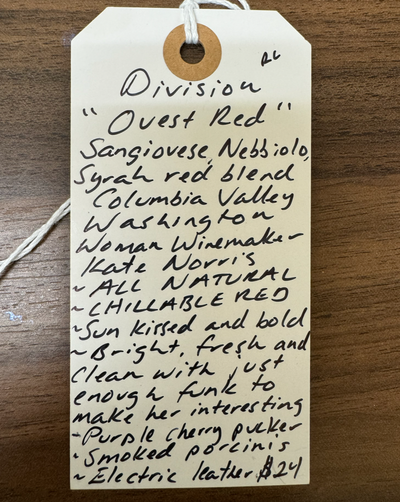 RL
Division
"Ouest Red"
Sangiovese, Nebbiolo,
Syrah red blend
Columbia Valley
Washington
Woman Winemaker
Kate Norris
~ALL NATURAL
~CHILLABLE RED
~Sun kissed and bold
~Bright, fresh and
clean with just
enough funk to
make her interesting
-Purple cherry pucker
-Smoked porcinis
~Electric leather $24